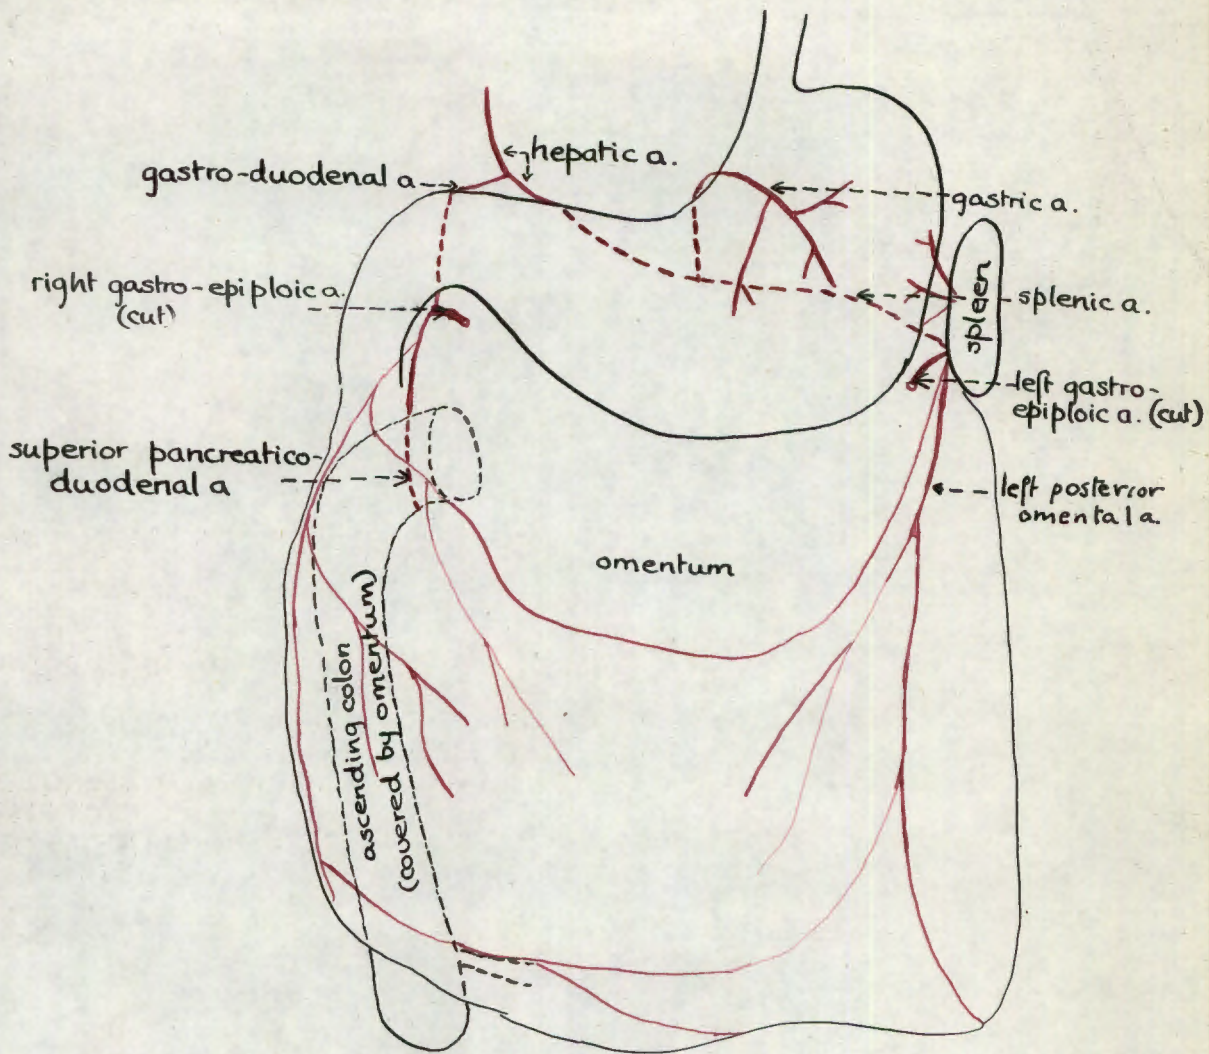 hepatic a.
gastro-duodenal a
gastric a.
right gastro-epiploic a.
(cut)
splenic a.
spleen
left gastro-
epiploic a. (cut)
superior pancreatico-
duodenal a
left posterior
omental a.
omentum
ascending colon
(covered by omentum)